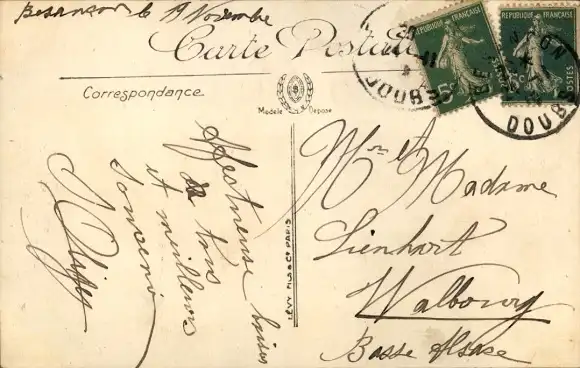 Besançon le 19 Novembre
Carte Postale
Correspondance
Modèle Déposé
REPUBLIQUE FRANÇAISE
POSTES
5c
REPUBLIQUE FRANÇAISE
POSTES
BESANÇON
DOUBS
DOUBS
Affectueuse baisers
à tous
et meilleurs
souvenirs
LÉVY FILS & Cie PARIS
Mr et Madame
Lienhart
Walbourg
Basse Alsace